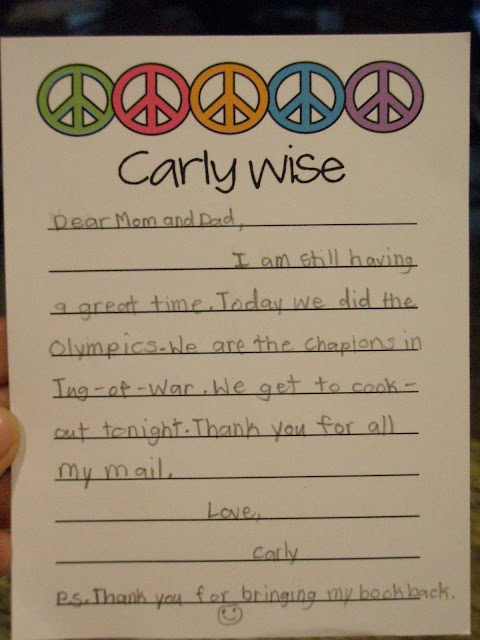 Carly Wise
Dear Mom and Dad,
I am still having
a great time. Today we did the
Olympics-We are the Chaplons in
Tug-of-War. We get to cook-
out tonight. Thank you for all
my mail.
Love,
Carly
P.S. Thank you for bringing my book back.